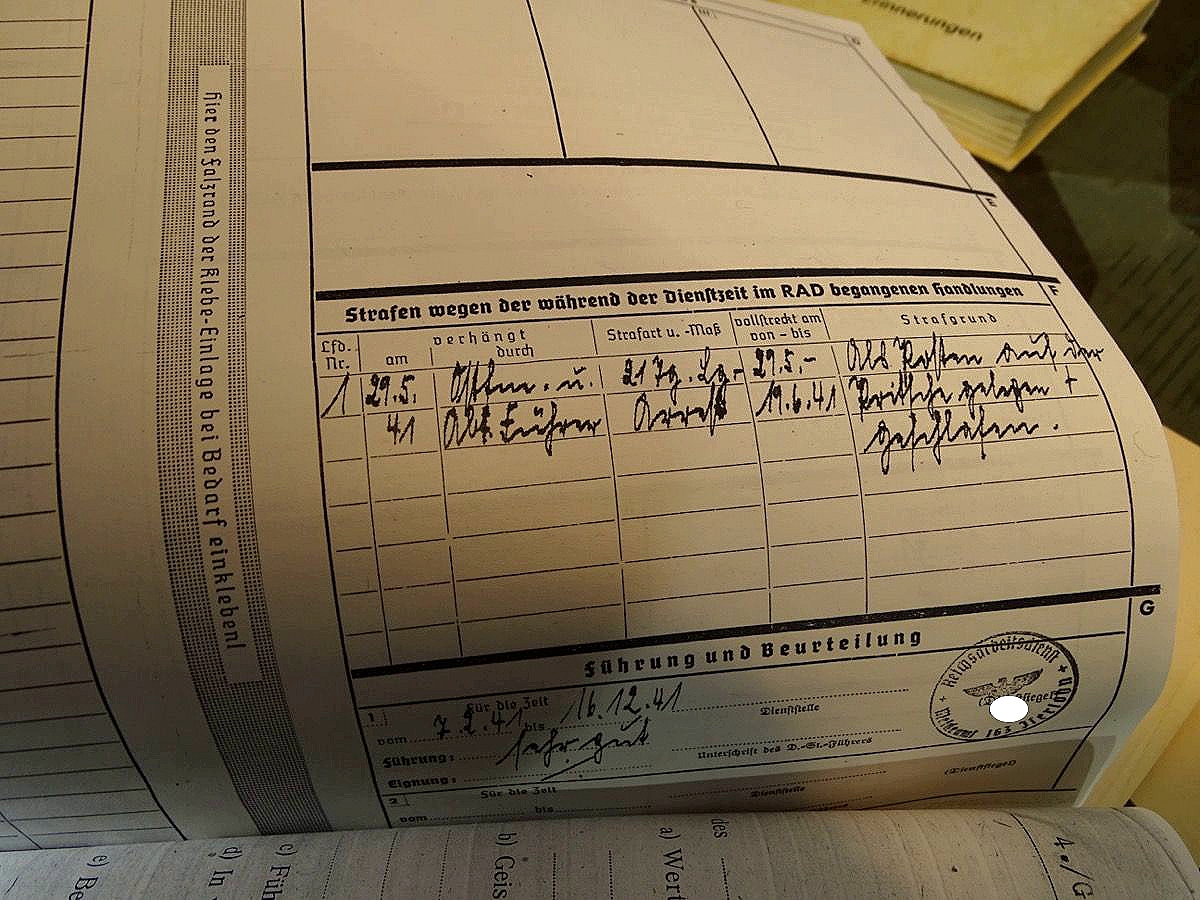 Erinnerungen
Hier den Falzrand der Klebe-Einlage bei Bedarf einkleben!
F
Strafen wegen der während der Dienstzeit im RAD begangenen Handlungen
Lfd. Nr.
verhängt
am
durch
Strafart u. -Maß
vollstreckt am
von - bis
Strafgrund
1 29.5. u. 21 Tg. 29.5.- Als Posten auf der
41 Abt. Führer Arrest 19.6.41 Pritsche gelegen +
geschlafen.
G
Führung und Beurteilung
1 Für die Zeit
vom 7.2.41 bis 16.12.41
Dienststelle
Führung: sehr gut
Unterschrift des D.-St.-Führers
Eignung:
(Dienstsiegel)
Reichsarbeitsdienst
Meldeamt 163
2 Für die Zeit
Dienststelle
vom bis
des
a) Wert
b) Geis
c) Füh
d) In
e) Be
4./G